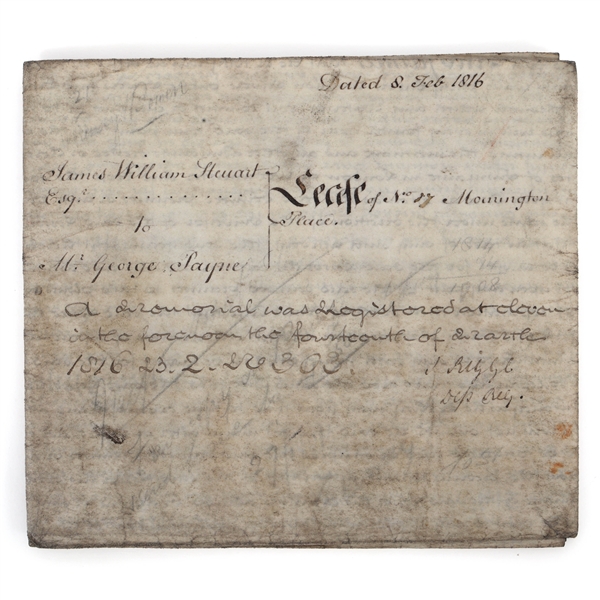 Dated 8. Feb 1816
James William Steuart
Esqr. . . . . . . . . . . . . . .
to
Mr. George Payne
Lease of No. 17 Mornington
Place.
A Memorial was Registered at eleven
in the forenoon the fourteenth of March
1816 B. 2. No 363.
Dep Reg.